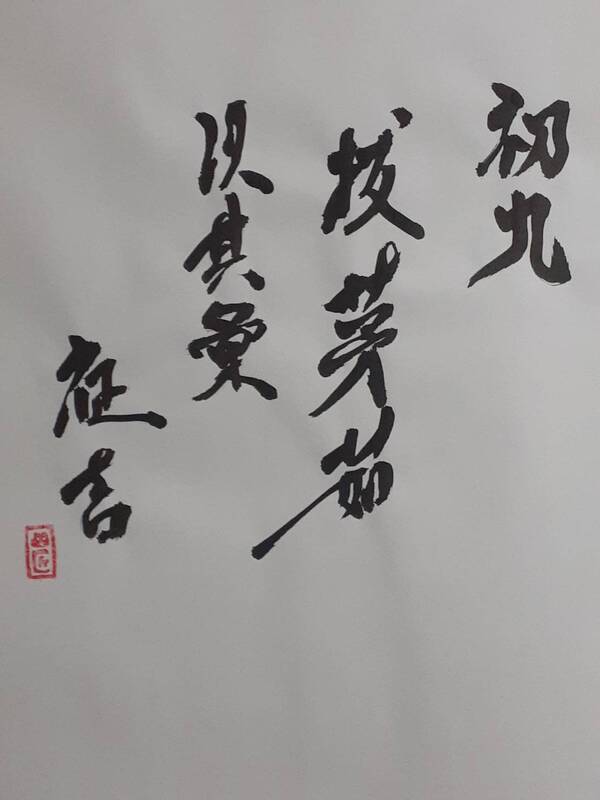 初九
拔茅茹
以其彙
征吉